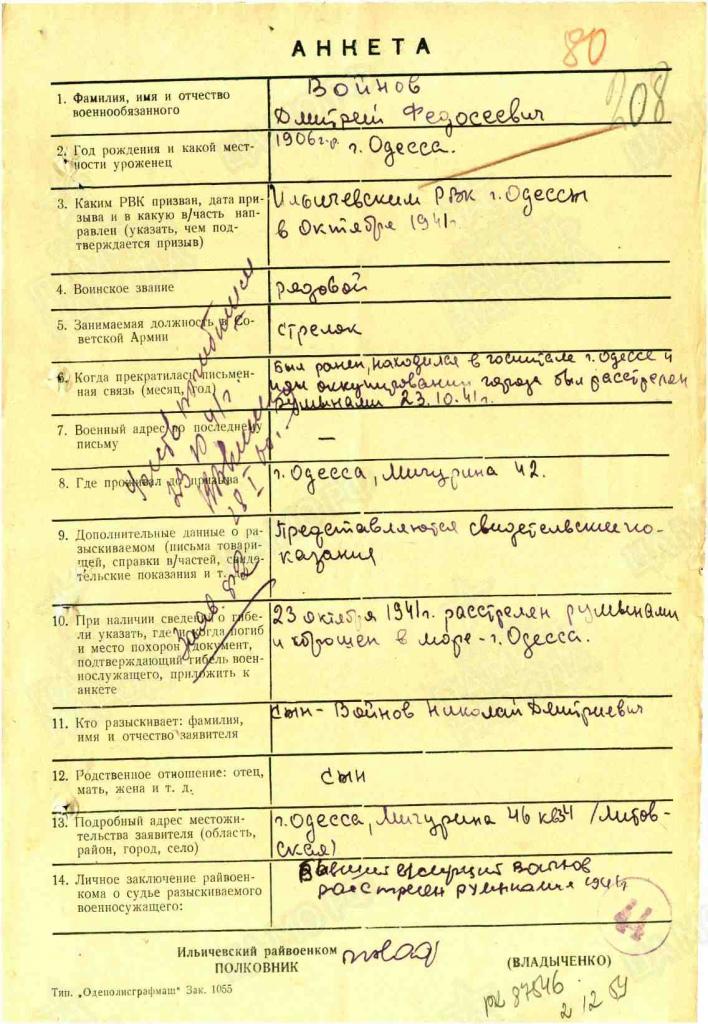 АНКЕТА
80
208
1. Фамилия, имя и отчество
военнообязанного
Войнов
Дмитрий Федосеевич
2. Год рождения и какой мест-
ности уроженец
1906 г.р. г. Одесса.
3. Каким РВК призван, дата при-
зыва и в какую в/часть нап-
равлен (указать, чем под-
тверждается призыв)
Ильичевским РВК г. Одессы
в октябре 1941г.
4. Воинское звание
рядовой
5. Занимаемая должность в Со-
ветской Армии
стрелок
6. Когда прекратилась письмен-
ная связь (месяц, год)
Был ранен, находился в госпитале г. Одессе и
при оккупировании города был расстрелен
румынами 23.10.41г.
7. Военный адрес по последнему
письму
—
8. Где проживал до призыва
г. Одесса, Мичурина 42.
9. Дополнительные данные о ра-
зыскиваемом (письма товари-
щей, справки в/частей, свиде-
тельские показания и т. д.)
Представляются свидетельские по-
казания
10. При наличии сведений о гибе-
ли указать, где и когда погиб
и место похорон (документ,
подтверждающий гибель воен-
нослужащего, приложить к
анкете
23 октября 1941г. расстрелен румынами
и сброшен в море - г. Одесса.
11. Кто разыскивает: фамилия,
имя и отчество заявителя
сын - Войнов Николай Дмитриевич
12. Родственное отношение: отец,
мать, жена и т. д.
сын
13. Подробный адрес местожи-
тельства заявителя (область,
район, город, село)
г. Одесса, Мичурина 46 кв 34 /Литов-
ская)
14. Личное заключение райвоен-
кома о судье разыскиваемого
военосужащего:
Войнов
расстрелен румынами 1941г
Учесть погибшим
23 10 41г
28 I
44
Ильичевский райвоенком
ПОЛКОВНИК
(ВЛАДЫЧЕНКО)
Тип. „Одеполиграфмаш" Зак. 1055
рк 87546
2 12 54